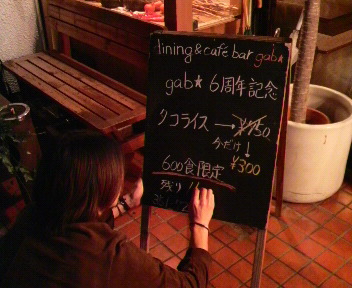 dining & cafe bar gab★
gab★ 6周年記念
タコライス → ¥750
今だけ↓
¥300
600食限定
残り